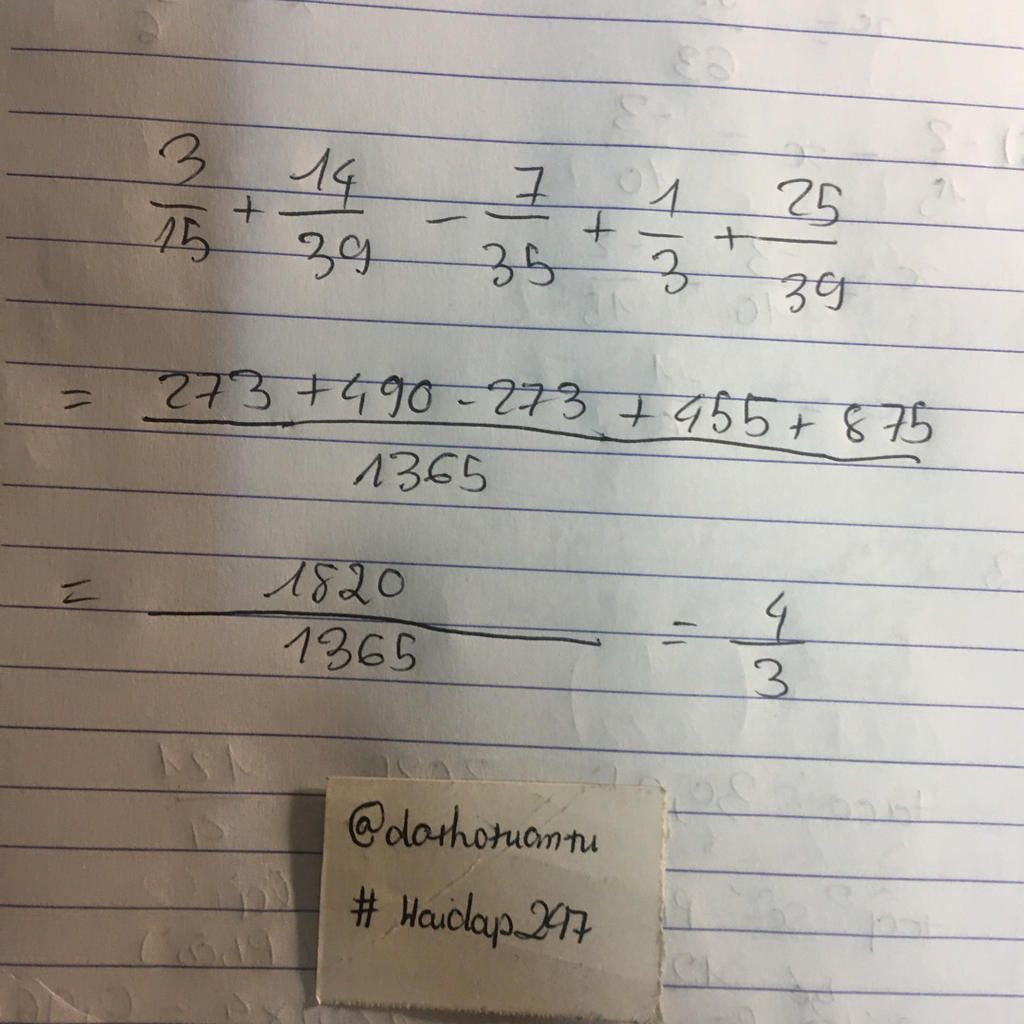 3/15 + 14/39 - 7/35 + 1/3 + 25/39
= 273 + 490 - 273 + 455 + 875 / 1365
= 1820/1365 = 4/3
@dathotuantu
# Hoidap_247